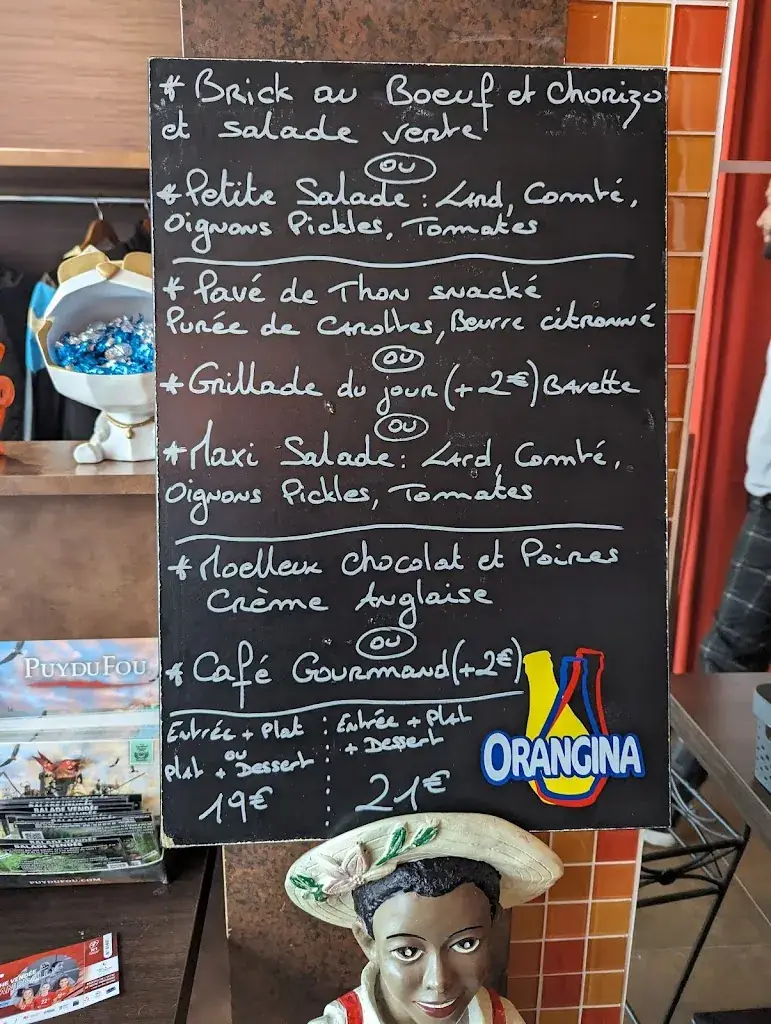 * Brick au Boeuf et Chorizo
et salade verte
ou
* Petite Salade : Lard, Comté,
Oignons Pickles, Tomates
* Pavé de Thon snacké
Purée de Carottes, Beurre citronné
ou
* Grillade du jour (+2€) Bavette
ou
* Maxi Salade : Lard, Comté,
Oignons Pickles, Tomates
* Moelleux chocolat et Poires
Crème Anglaise
ou
* Café Gourmand (+2€)
Entrée + Plat
ou
Plat + Dessert
19€
Entrée + Plat
+ Dessert
21€
ORANGINA
PUY DU FOU
BALADE VENDÉE
BALADE VENDÉE
PUYDUFOU.COM